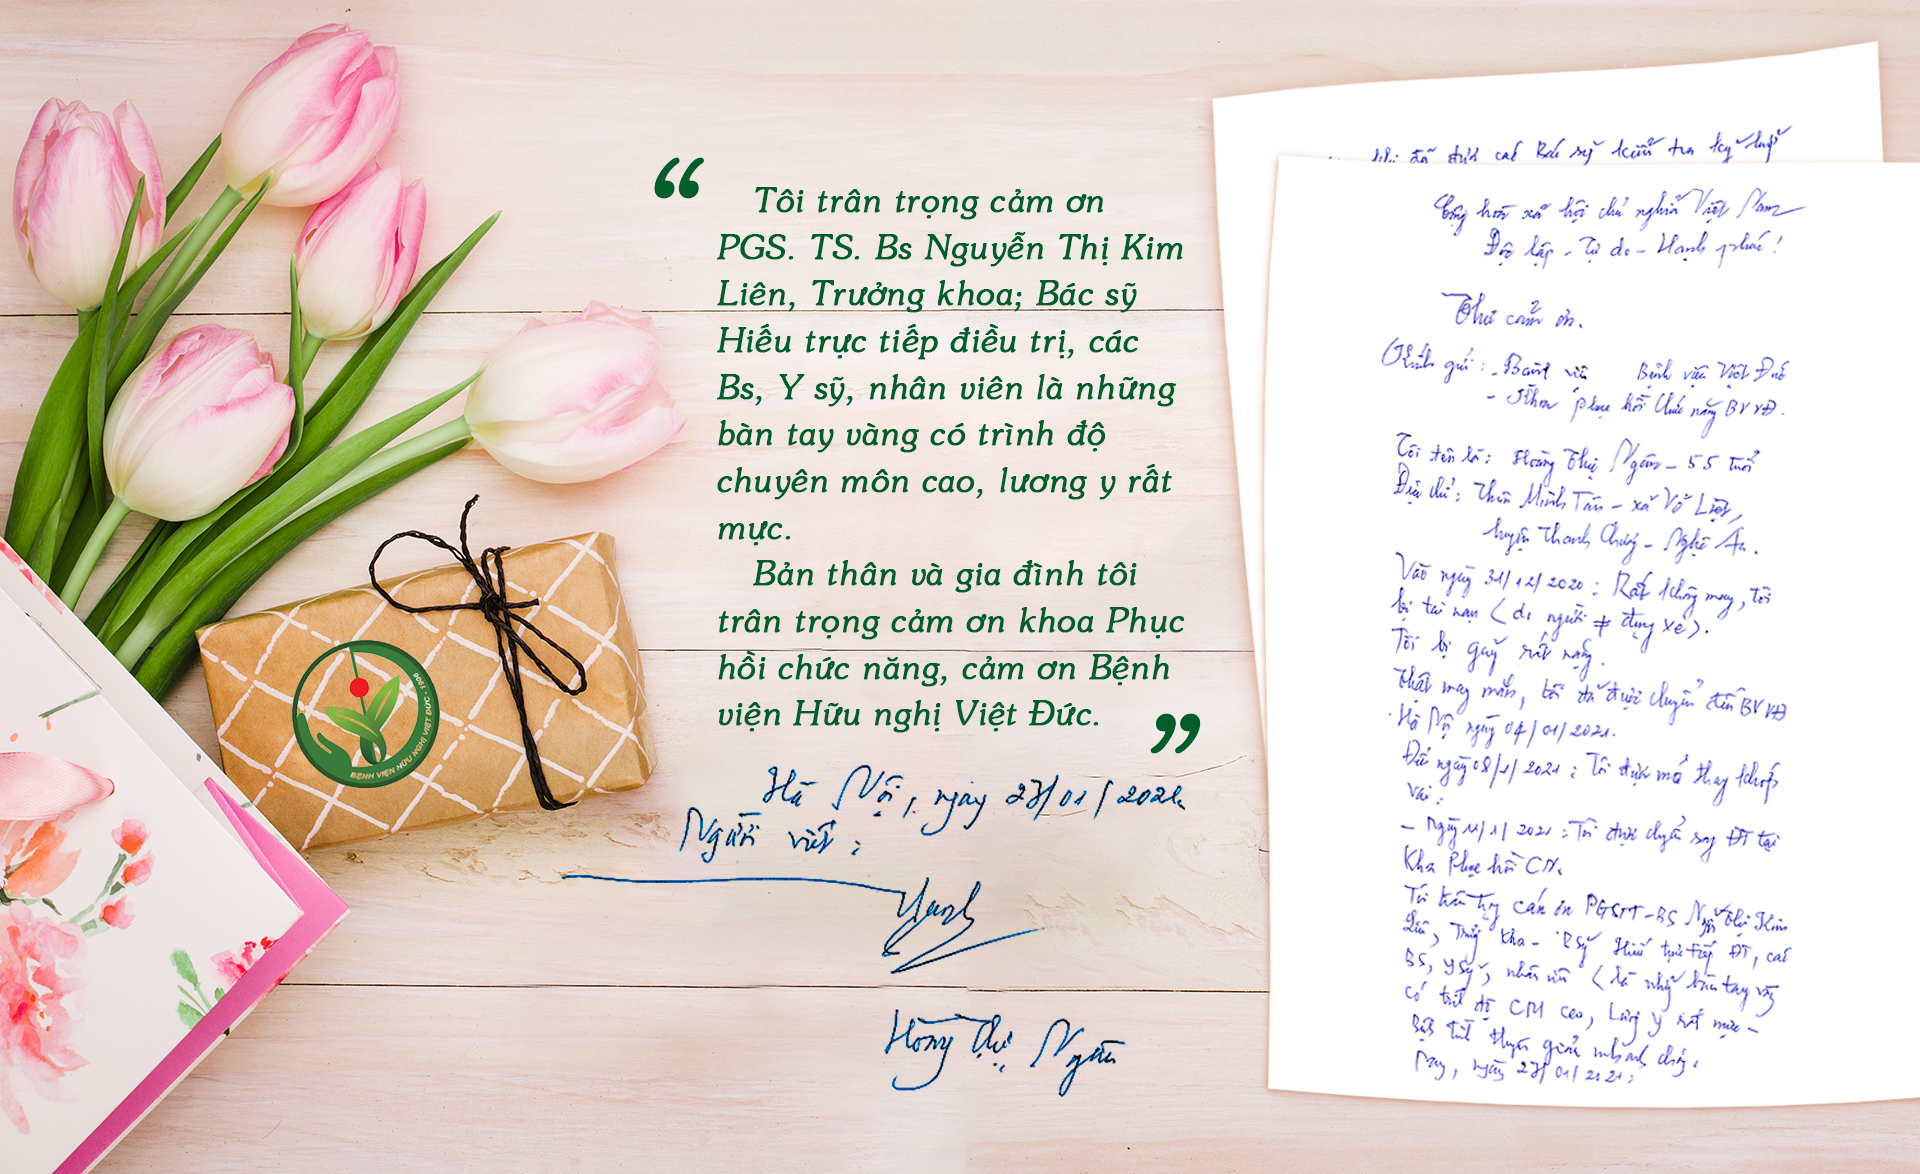 “
Tôi trân trọng cảm ơn
PGS. TS. Bs Nguyễn Thị Kim
Liên, Trưởng khoa; Bác sỹ
Hiếu trực tiếp điều trị, các
Bs, Y sỹ, nhân viên là những
bàn tay vàng có trình độ
chuyên môn cao, lương y rất
mực.
Bản thân và gia đình tôi
trân trọng cảm ơn khoa Phục
hồi chức năng, cảm ơn Bệnh
viện Hữu nghị Việt Đức.
”
Hà Nội, ngày 27/01/2021.
Người viết:
Hoàng Thị Ngân
BỆNH VIỆN HỮU NGHỊ VIỆT ĐỨC - 1906
đã được các Bác sỹ kiểm tra kỹ
Cộng hòa xã hội chủ nghĩa Việt Nam
Độc lập - Tự do - Hạnh phúc!
Thư cảm ơn.
Kính gửi: - Bệnh viện Việt Đức
- Khoa phục hồi chức năng BV VĐ.
Tôi tên là: Hoàng Thị Ngân - 55 tuổi
Địa chỉ: Thôn Minh Tân - xã Võ Liệt,
huyện Thanh Chương - Nghệ An.
Vào ngày 31/12/2020: Rất không may, tôi
bị tai nạn (do người ≠ đụng xe).
Tôi bị gãy rất nặng.
Thật may mắn, tôi đã được chuyển đến BV VĐ
Hà Nội ngày 04/01/2021.
Đến ngày 08/1/2021: Tôi được mổ thay khớp
vai.
- Ngày 11/1/2021: Tôi được chuyển sang ĐT tại
Khoa Phục hồi CN.
Tôi trân trọng cảm ơn PGSTT-BS Nguyễn Thị Kim
Liên, Trưởng khoa - Bsỹ Hiếu trực tiếp ĐT, các
BS, Y sỹ, nhân viên (là những bàn tay vàng
có trình độ CM cao, Lương y rất mực -
Nay, ngày 27/01/2021: